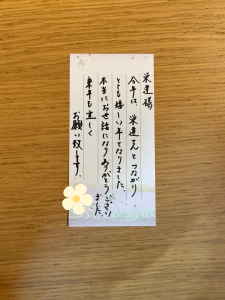 栄達様
今年は、栄達えんとつながり
とても嬉しい年となりました。
本当にお世話になりありがとうござい
ました。
来年も宜しく
お願い致します。